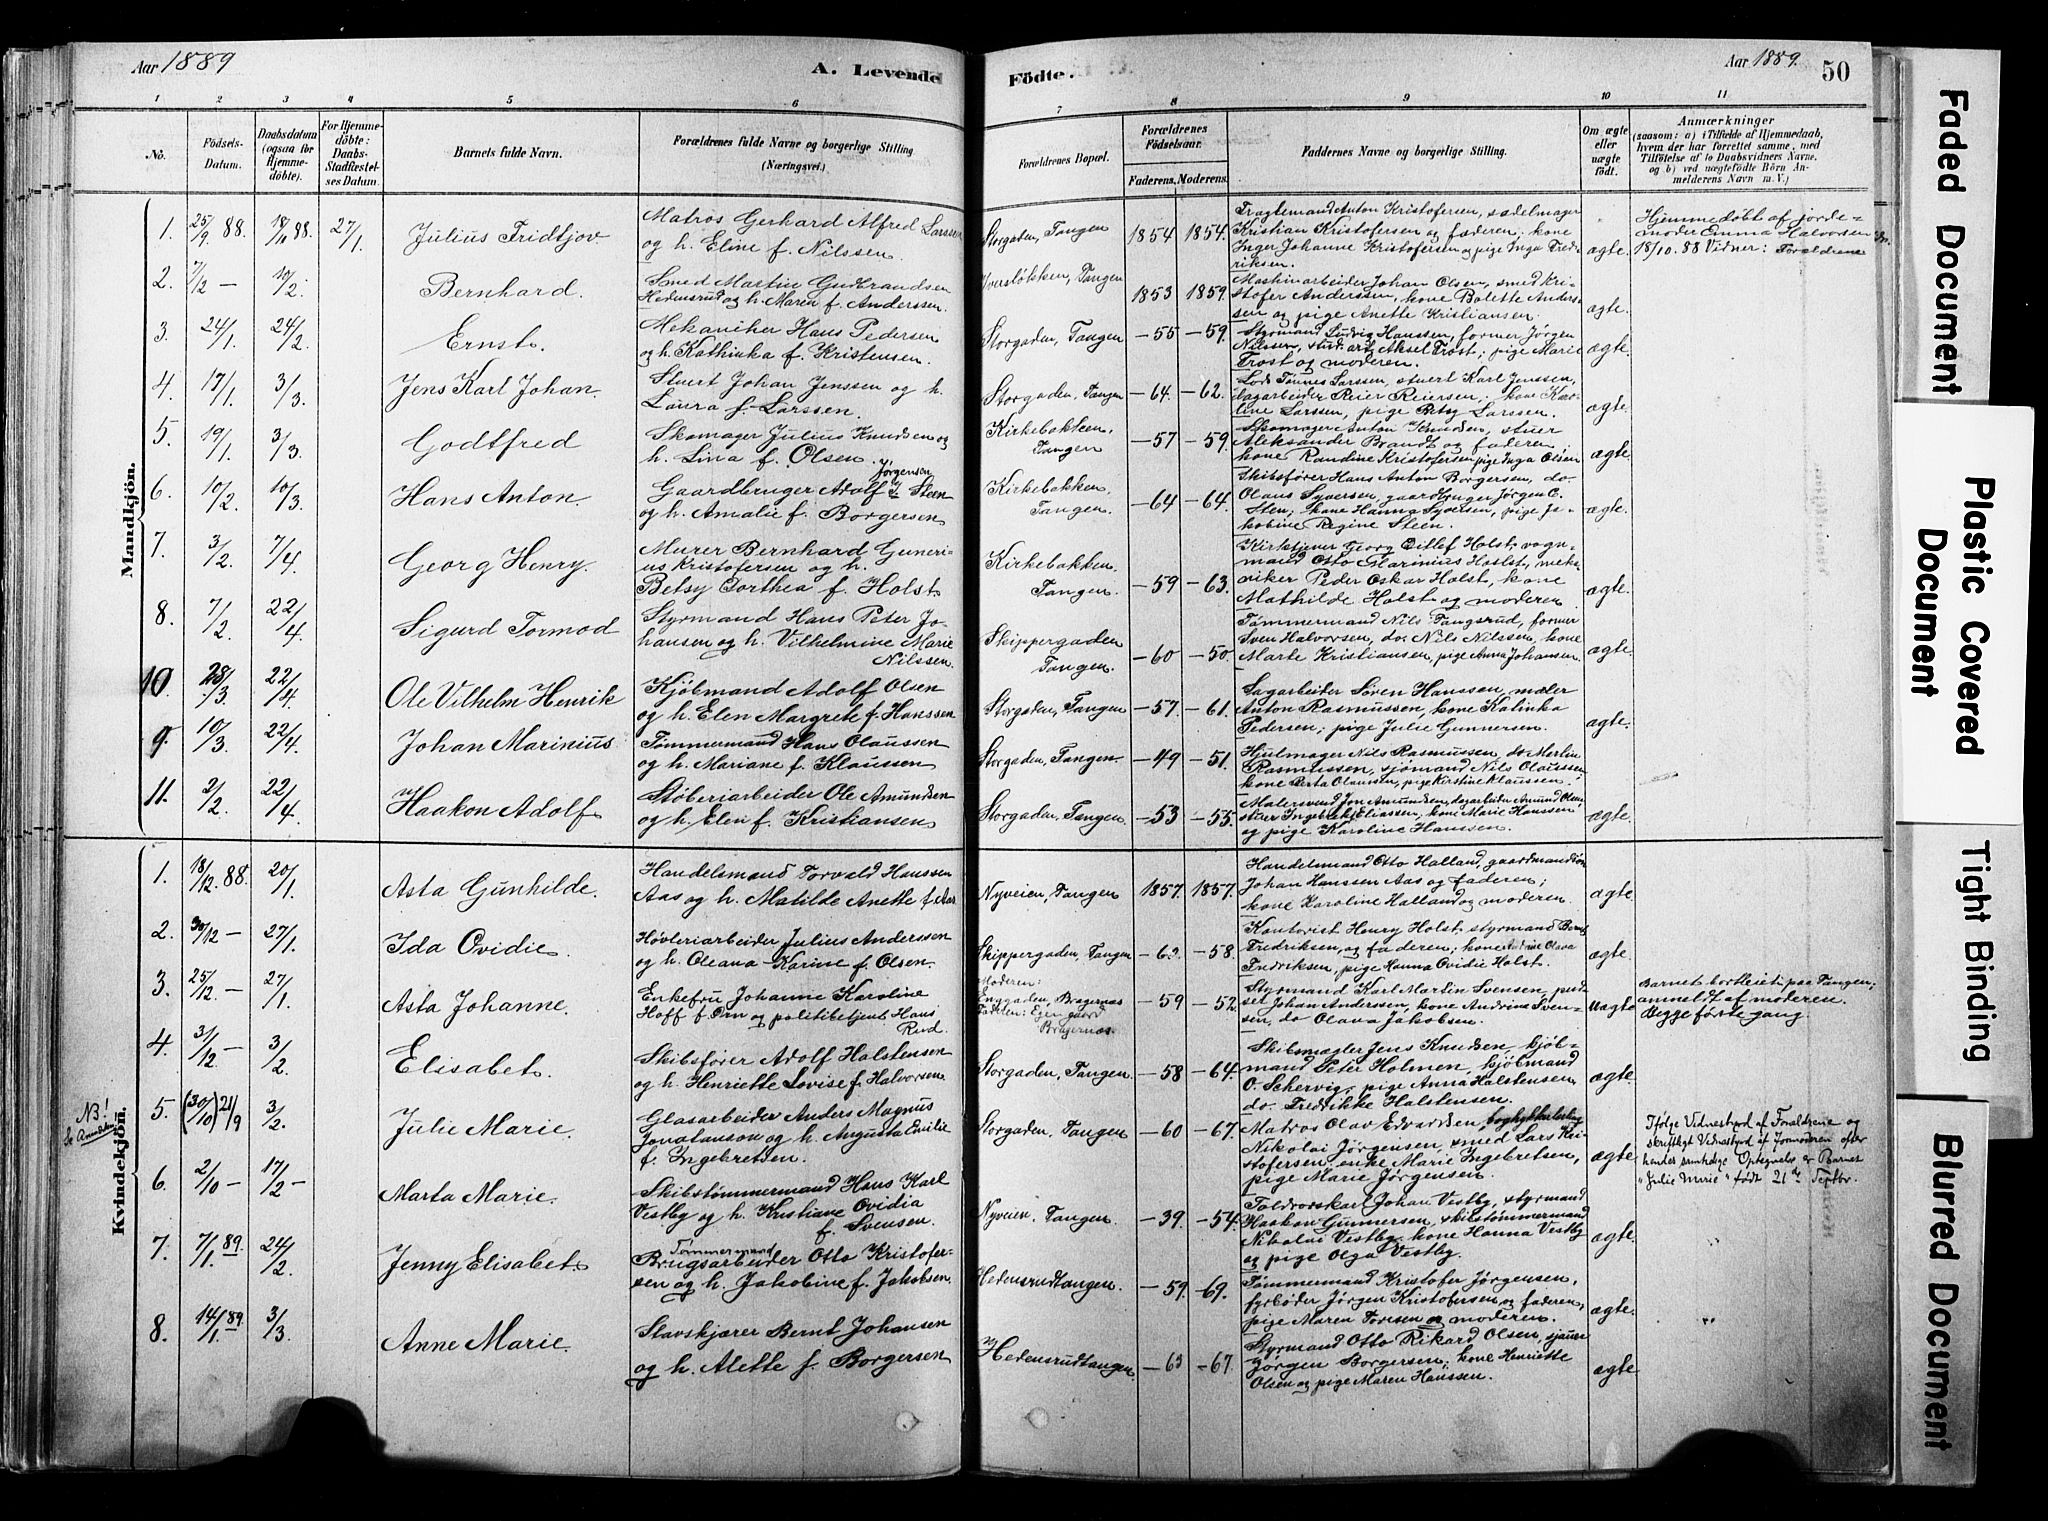 Aar 1889
A. Levende Födte.
Aar 1889.
50
1 2 3 4 5 6 7 8 9 10 11
No.
Födsels-Datum.
Daabsdatum (ogsaa for Hjemmedöbte).
For Hjemmedöbte: Daabs-Stadfæstelses Datum.
Barnets fulde Navn.
Forældrenes fulde Navne og borgerlige Stilling (Næringsvei.)
Forældrenes Bopæl.
Forældrenes Födselsaar.
Faderens. Moderens.
Faddernes Navne og borgerlige Stilling.
Om ægte eller uægte födt.
Anmærkninger
(saasom: a) i Tilfælde af Hjemmedaab,
hvem der har forrettet samme, med
Tilföielse af to Daabsvidners Navne,
og b) ved uægtefödte Börn Anmelderens Navn m. V.)
Mandkjön.
1. 25/9 88. 18/10 88. 27/1. Julius Fridtjov
Matros Gerhard Alfred Larssen
og h. Eline f. Nilssen.
Storgaden, Tangen 1854 1854.
Fragtemand Anton Kristofersen, sadelmager
Kristian Kristofersen og faderen; kone
Inger Johanne Kristofersen og pige Inga Fredriksen.
ægte.
Hjemmedøbt af jordemoder Emma Halvorsen
18/10. 88 Vidner: Forældrene
2. 7/12 — 10/2. Bernhard.
Smed Martin Gudbrandsen
Hedensrud og h. Maren f. Anderssen.
Iversløkken, Tangen 1853 1859.
Maskinarbeider Johan Olsen, smed Kristofer Anderssen, kone Bolette Anderssen og pige Anette Kristiansen.
ægte.
3. 24/1. 24/2. Ernst.
Mekaniker Hans Pedersen
og h. Kathinka f. Kristensen.
Storgaden, Tangen —55 —59.
Styrmand Ludvig Hanssen, former Jørgen
Nilssen, stud. art. Aksel Trost; pige Marie
Trost og moderen.
ægte.
4. 17/1. 3/3. Jens Karl Johan.
Stuert Johan Jenssen og h.
Laura f. Larssen.
Storgaden, Tangen —64. —62.
Lods Tønnes Larssen, stuert Karl Jenssen,
dagarbeider Reier Reiersen; kone Karoline Larssen, pige Betsy Larssen.
ægte.
5. 19/1. 3/3. Godtfred
Skomager Julius Knudsen og
h. Lina f. Olsen.
Kirkebakken, Tangen —57 —59.
Skomager Anton Knudsen, stuer
Aleksander Brandt og faderen;
kone Randine Kristofersen, pige Inga Olsen
ægte.
6. 10/2. 10/3. Hans Anton
Gaardbruger Adolf J. Steen
Jørgensen
og h. Amalie f. Borgersen
Kirkebakken, Tangen. —64 —64.
Skibsfører Hans Anton Borgersen, do.
Olaus Syversen, gaardbruger Jørgen O.
Sten; kone Hanna Syversen, pige Jakobine Regine Steen.
ægte.
7. 3/2. 7/4. Georg Henry.
Murer Bernhard Gunerius Kristofersen og h.
Betsy Dorthea f. Holst.
Kirkebakken. Tangen. —59 —63.
Kirketjener Georg Ditlef Holst, vognmand Otto Marinius Holst, mekaniker Peder Oskar Holst, kone
Mathilde Holst og moderen
ægte.
8. 7/2. 22/4. Sigurd Tormod
Styrmand Hans Peter Johansen og h. Vilhelmine Marie
Nilssen.
Skippergaden Tangen. —60 —50.
Tømmermand Nils Tangsrud, former
Sven Halvorsen, do. Nils Nilssen, kone
Marte Kristiansen, pige Anna Johansen.
ægte.
10. 28/3 22/4. Ole Vilhelm Henrik
Kjøbmand Adolf Olsen
og h. Elen Margrete f. Hanssen
Storgaden, Tangen —57. —61.
Sagarbeider Søren Hanssen, maler
Anton Rasmussen, kone Kalinka
Pedersen; pige Julie Gunnersen.
ægte.
9. 10/3. 22/4. Johan Marinius
Tømmermand Hans Olaussen
og h. Mariane f. Klaussen
Storgaden, Tangen —49 —51.
Hjulmager Nils Rasmussen, do Martin
Rasmussen, sjømand Nils Olaussen,
kone Berta Olaussen, pige Kirstine Klaussen.
11. 2/2. 22/4. Haakon Adolf
Støberiarbeider Ole Amundsen
og h. Elen f. Kristiansen
Storgaden, Tangen. —53 —55.
Malersvend Jon Amundsen, dagarbeider Amund Olsen,
stuer Ingebrikt Eliassen, kone Marie Hanssen
og pige Karoline Hanssen.
ægte.
Kvindekjön.
1. 18/12. 88. 20/1. Asta Gunhilde.
Handelsmand Torvald Hanssen
Aas og h. Matilde Anette f. Aas
Nyveien, Tangen 1857. 1857.
Handelsmand Otto Halland, gaardmand
Johan Hanssen Aas og faderen;
kone Karoline Halland og moderen.
ægte.
2. 30/12 — 27/1. Ida Ovidie.
Høvleriarbeider Julius Anderssen
og h. Oleana Karine f. Olsen.
Skippergaden, Tangen —63 —58.
Kontorist Henry Holst, styrmand Bernt
Fredriksen, og faderen; kone Andrine Olava
Fredriksen, pige Hanna Ovidie Holst.
ægte.
3. 25/12. — 27/1. Asta Johanne.
Enkefru Johanne Karoline
Hoff f. Orn og politibetjent Hans
Rud.
Moderen:
Enggaden, Bragernæs
Faderen: Egen gaard
Bragernæs.
—59 —52.
Styrmand Karl Martin Svensen, pudser Johan Anderssen, kone Andrine Svensen, do Olava Jakobsen.
uægte
Barnet bortleiet paa Tangen;
anmeldt af moderen.
Begge første gang.
4. 31/12 — 3/2. Elisabet.
Skibsfører Adolf Halstensen
og h. Henriette Lovise f. Halvorsen.
Storgaden, Tangen. —58 —64.
Skibsmægler Jens Knudsen, kjøbmand Peter Holmen, kjøbmand
O. Schervig, pige Anna Halstensen,
do. Fredrikke Halstensen.
ægte.
NB!
Se Anmærkn.
5. (30/10) 21/9 3/2. Julie Marie.
Glasarbeider Anders Magnus
Jonatanson og h. Augusta Emilie
f. Ingebretsen.
Storgaden, Tangen —60 —67.
Matros Olav Edvardsen, bogtykkerlærling
Nikolai Jørgensen, smed Lars Kristofersen, enke Marie Ingebretsen,
pige Marie Jørgensen.
ægte
Ifølge Vidnesbyrd af Forældrene og
skriftligt Vidnesbyrd af Jormoderen efter
hendes samtidige Optegnelse er Barnet
"Julie Marie" født 21de Septbr.
6. 2/10 — 17/2 — Marta Marie.
Skibstømmermand Hans Karl
Vestby og h. Kristiane Ovidia
f. Svensen.
Nyveien, Tangen. —39. —54.
Toldvorskar Johan Vestby, styrmand
Haakon Gunnersen, skibstømmermand
Nikolai Vestby, kone Hanna Vestby
og pige Olga Vestby.
ægte.
7. 7/1. 89. 24/2. Jenny Elisabet.
Tømmermand
Brugsarbeider Otto Kristofersen og h. Jakobine f. Jakobsen.
Hedensrudtangen. —59. —69.
Tømmermand Kristofer Jørgensen,
fyrbøder Jørgen Kristofersen og faderen,
pige Maren Toresen og moderen.
ægte.
8. 14/1 89. 3/3. Anne Marie.
Stavskjærer Bernt Johansen
og h. Alette f. Borgersen
Hedensrudtangen. —63 —67.
Styrmand Otto Rikard Olsen, sjauer
Jørgen Borgersen; kone Henriette
Olsen og pige Maren Hanssen.
ægte
Faded Document
Plastic Covered Document
Tight Binding
Blurred Document